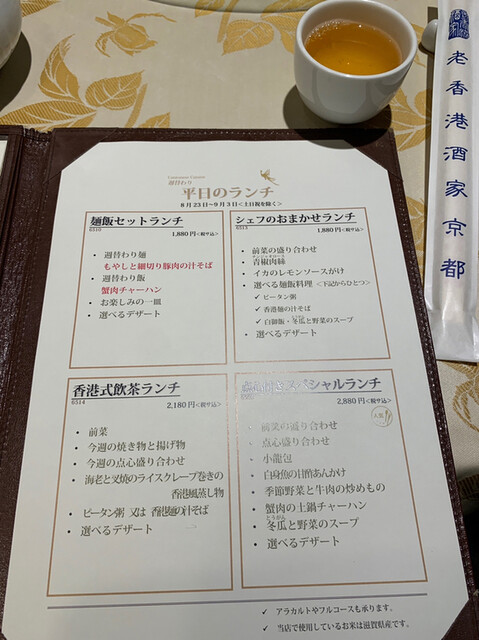 老香港酒家京都
週替わり
平日のランチ
8月23日〜9月3日<土日祝を除く>
麺飯セットランチ
6510
1,880円<税サ込>
・ 週替わり麺
もやしと細切り豚肉の汁そば
・ 週替わり飯
蟹肉チャーハン
・ お楽しみの一皿
・ 選べるデザート
シェフのおまかせランチ
6513
1,880円<税サ込>
・ 前菜の盛り合わせ
・ 青椒肉絲
・ イカのレモンソースがけ
・ 選べる麺飯料理 <下記からひとつ>
✓ ピータン粥
✓ 香港麺の汁そば
✓ 白御飯・冬瓜と野菜のスープ
・ 選べるデザート
香港式飲茶ランチ
6514
2,180円<税サ込>
・ 前菜
・ 今週の焼き物と揚げ物
・ 今週の点心盛り合わせ
・ 海老と叉焼のライスクレープ巻きの
香港風蒸し物
・ ピータン粥 又は 香港麺の汁そば
・ 選べるデザート
スペシャルランチ
2,880円<税サ込>
人気
・ 前菜の盛り合わせ
・ 点心盛り合わせ
・ 小龍包
・ 白身魚の甘酢あんかけ
・ 季節野菜と牛肉の炒めもの
・ 蟹肉の土鍋チャーハン
とうがん
・ 冬瓜と野菜のスープ
・ 選べるデザート
✓ アラカルトやフルコースも承ります。
✓ 当店で使用しているお米は滋賀県産です。